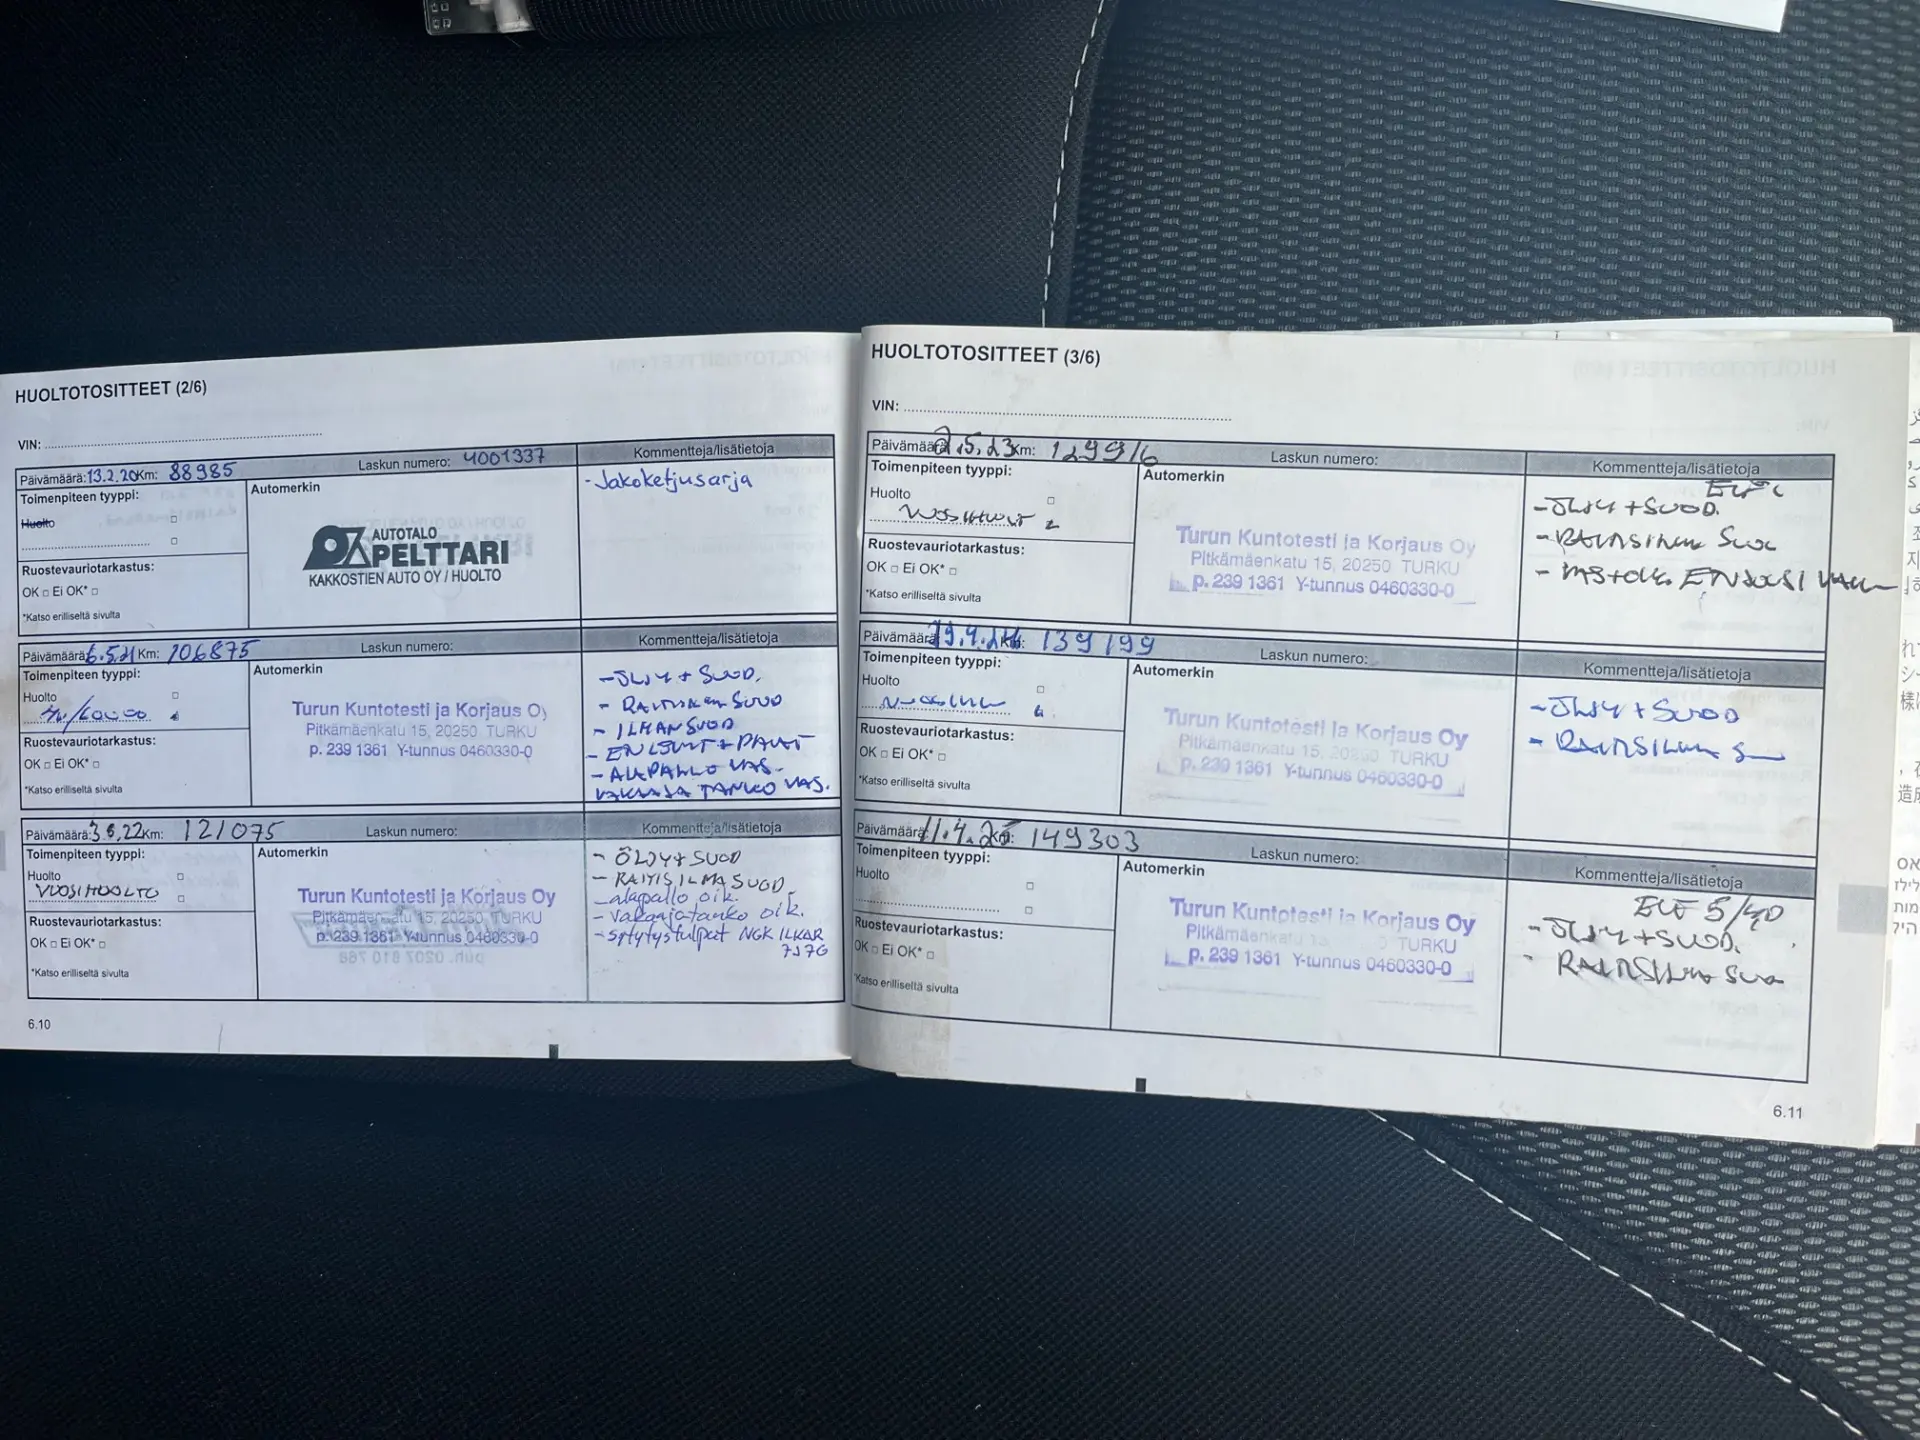 HUOLTOTOSITTEET (2/6)
VIN:
Päivämäärä: 13.2.20 Km: 88985 Laskun numero: 4001337 Kommentteja/lisätietoja
Toimenpiteen tyyppi:
Huolto
Ruostevauriotarkastus:
OK □ Ei OK* □
*Katso erilliseltä sivulta
Automerkin
AUTOTALO
PELTTARI
KAKKOSTIEN AUTO OY / HUOLTO
- Jakoketjusarja
Päivämäärä: 6.5.21 Km: 106875 Laskun numero: Kommentteja/lisätietoja
Toimenpiteen tyyppi:
Huolto
Ruostevauriotarkastus:
OK □ Ei OK* □
*Katso erilliseltä sivulta
Automerkin
Turun Kuntotesti ja Korjaus Oy
Pitkämäenkatu 15, 20250 TURKU
p. 239 1361 Y-tunnus 0460330-0
- ÖLJY + SUOD.
- RAITISILMAN SUOD
- ILMANSUOD
- ALAPALLO VAS.
VAKAAJA TANKO VAS.
Päivämäärä: 3.6.22 Km: 121075 Laskun numero: Kommentteja/lisätietoja
Toimenpiteen tyyppi:
Huolto
VUOSIHUOLTO
Ruostevauriotarkastus:
OK □ Ei OK* □
*Katso erilliseltä sivulta
Automerkin
Turun Kuntotesti ja Korjaus Oy
Pitkämäenkatu 15, 20250 TURKU
p. 239 1361 Y-tunnus 0460330-0
- ÖLJY + SUOD
- RAITISILMASUOD
- alapallo oik.
- vakaajatanko oik.
- sytytystulpat NGK ILKAR
7J7G
6.10
HUOLTOTOSITTEET (3/6)
VIN:
Päivämäärä: 2.5.23 Km: 129916 Laskun numero: Kommentteja/lisätietoja
Toimenpiteen tyyppi:
Huolto
VUOSIHUOLT
Ruostevauriotarkastus:
OK □ Ei OK* □
*Katso erilliseltä sivulta
Automerkin
Turun Kuntotesti ja Korjaus Oy
Pitkämäenkatu 15, 20250 TURKU
p. 239 1361 Y-tunnus 0460330-0
- ÖLJY + SUOD.
- RAITISILMA SUOD
Päivämäärä: 19.4.24 Km: 139199 Laskun numero: Kommentteja/lisätietoja
Toimenpiteen tyyppi:
Huolto
Ruostevauriotarkastus:
OK □ Ei OK* □
*Katso erilliseltä sivulta
Automerkin
Turun Kuntotesti ja Korjaus Oy
Pitkämäenkatu 15, 20250 TURKU
p. 239 1361 Y-tunnus 0460330-0
- ÖLJY + SUOD
- RAITISILMA
Päivämäärä: 11.4.25 Km: 149303 Laskun numero: Kommentteja/lisätietoja
Toimenpiteen tyyppi:
Huolto
Ruostevauriotarkastus:
OK □ Ei OK* □
*Katso erilliseltä sivulta
Automerkin
Turun Kuntotesti ja Korjaus Oy
Pitkämäenkatu TURKU
p. 239 1361 Y-tunnus 0460330-0
ELF 5/40
- ÖLJY + SUOD.
- RAITISILMA SUO
6.11